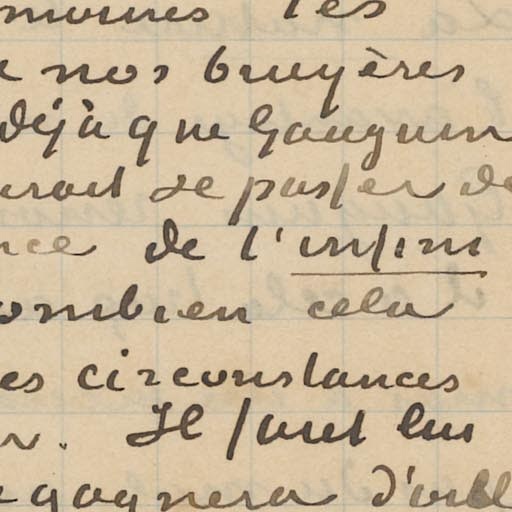 moines les
nos bruyères
déjà que Gauguin
se passer de
de l'infini
combien cela
es circonstances
. Il faut lui
gagnera d'oubl